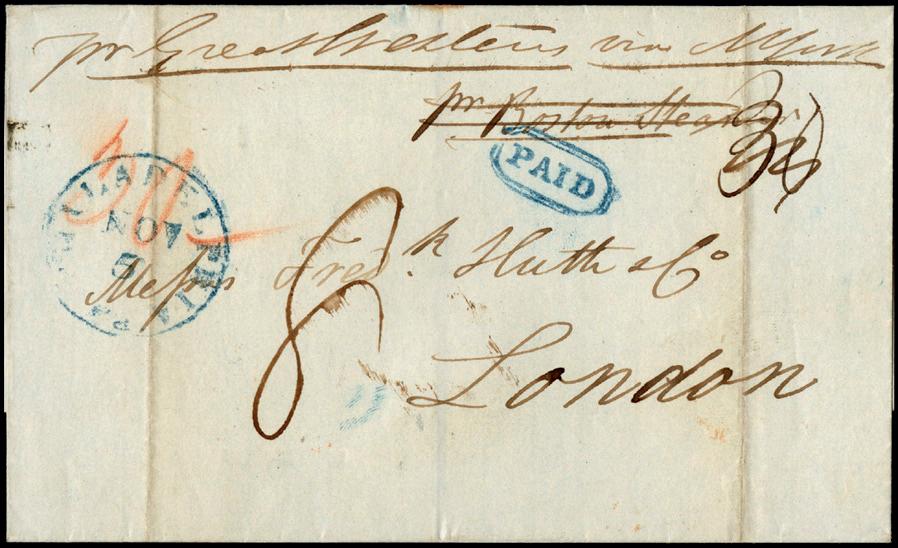 pr Great Western via N York
pr Boston Steamer
PAID
PHILADELPHIA PA
NOV
Messrs Fredk Huth & Co
8
London